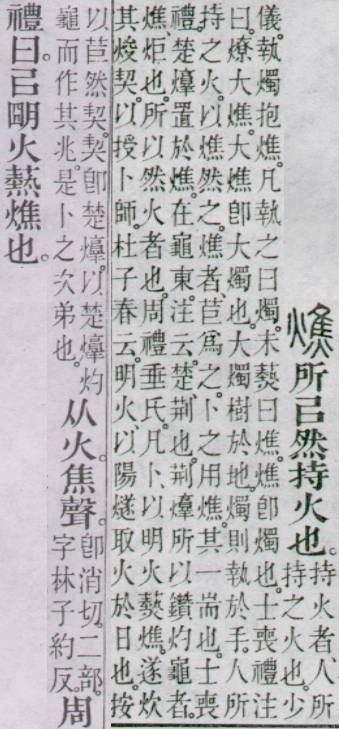 燋所㠯然持火也。持火者、人所
持之火也。少
儀。執燭抱燋。凡執之曰燭。未爇曰燋。燋卽燭也。士喪禮注
曰。燎大燋。大燋卽大燭也。大燭樹於地。燭則執於手。人所
持之火。以燋然之。燋者、苣爲之。卜之用燋。其一耑也。士喪
禮。楚焞置於燋。在龜東。注云。楚、荆也。荆焞所以鑽灼龜者。
燋、炬也。所以然火者也。周禮垂氏。凡卜、以明火爇燋。遂炊
其焌契。以授卜師。杜子春云。明火、以陽燧取火於日也。按
以苣然契。契卽楚焞。以楚焞灼
龜而作其兆。是卜之次弟也。
从火焦聲。卽消切。二部。
字林子約反。周
禮曰。㠯朙火爇燋也。